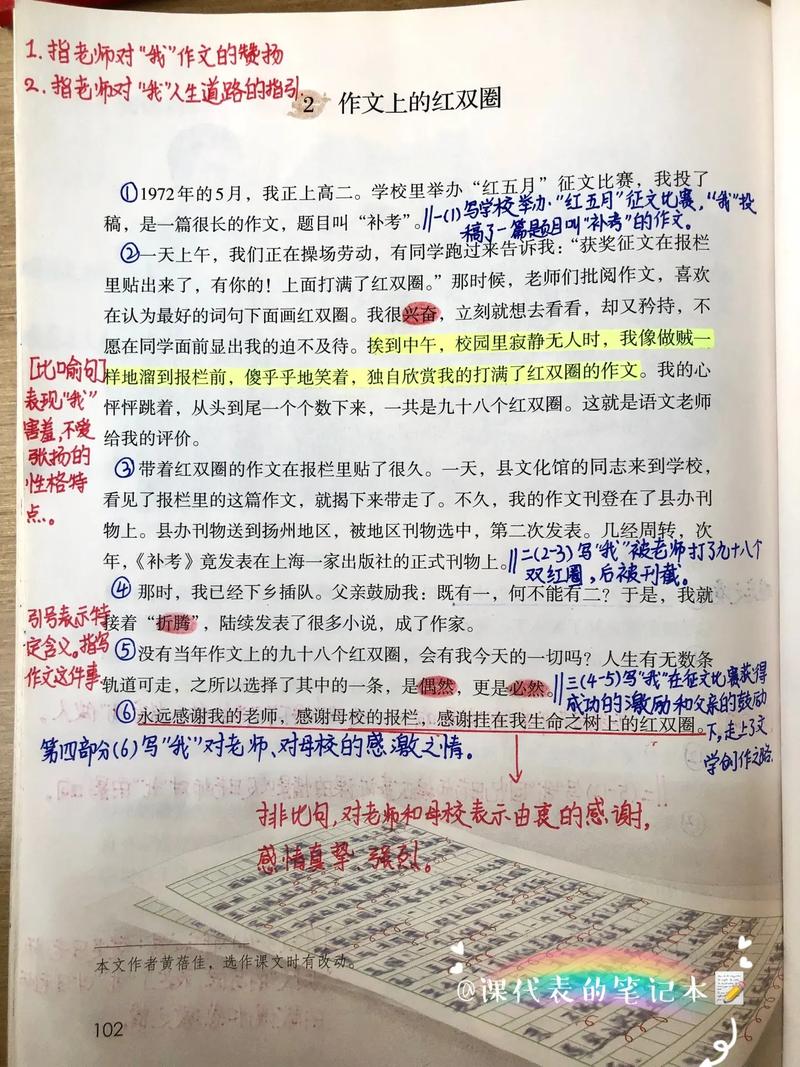 1. 指老师对“我”作文的赞扬
2. 指老师对“我”人生道路的指引.
2 作文上的红双圈
①1972年的5月，我正上高二。学校里举办“红五月”征文比赛，我投了
稿，是一篇很长的作文，题目叫“补考”。
‖一(1)写学校举办“红五月”征文比赛，“我”投
稿了一篇题目叫“补考”的作文。
②一天上午，我们正在操场劳动，有同学跑过来告诉我：“获奖征文在报栏
里贴出来了，有你的！上面打满了红双圈。”那时候，老师们批阅作文，喜欢
在认为最好的词句下面画红双圈。我很兴奋，立刻就想去看看，却又矜持，不
愿在同学面前显出我的迫不及待。挨到中午，校园里寂静无人时，我像做贼一
样地溜到报栏前，傻乎乎地笑着，独自欣赏我的打满了红双圈的作文。我的心
怦怦跳着，从头到尾一个个数下来，一共是九十八个红双圈。这就是语文老师
给我的评价。
[比喻句]
表现“我”
害羞，不爱
张扬的
性格特
点。
③带着红双圈的作文在报栏里贴了很久。一天，县文化馆的同志来到学校，
看见了报栏里的这篇作文，就揭下来带走了。不久，我的作文刊登在了县办刊
物上。县办刊物送到扬州地区，被地区刊物选中，第二次发表。几经周转，次
年，《补考》竟发表在上海一家出版社的正式刊物上。
‖二(2-3)写“我”被老师打了九十八个
双红圈，后被刊载。
④那时，我已经下乡插队。父亲鼓励我：既有一，何不能有二？于是，我就
接着“折腾”，陆续发表了很多小说，成了作家。
引号表示特
定含义。指写
作文这件事
⑤没有当年作文上的九十八个红双圈，会有我今天的一切吗？人生有无数条
轨道可走，之所以选择了其中的一条，是偶然，更是必然。
‖三(4-5)写“我”在征文比赛获得
成功的激励和父亲的鼓励
下，走上了文
学创作之路.
⑥永远感谢我的老师，感谢母校的报栏，感谢挂在我生命之树上的红双圈。
第四部分(6)写“我”对老师、对母校的感激之情。
排比句，对老师和母校表示由衷的感谢，
感情真挚、强烈。
本文作者黄蓓佳，选作课文时有改动。
@课代表的笔记本
102